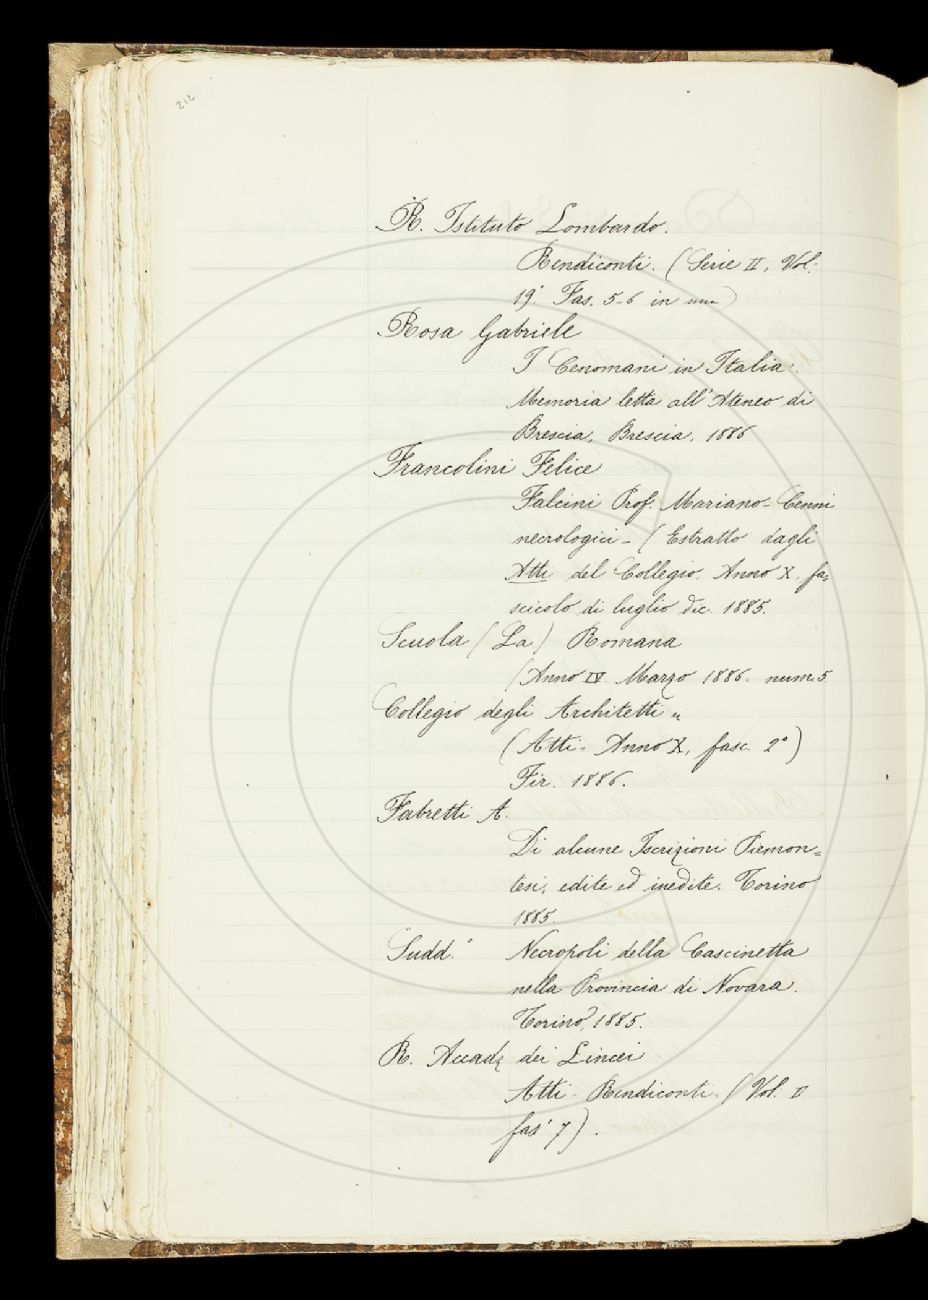 212
R. Istituto Lombardo.
Rendiconti. (Serie II, Vol.
19.° Fas. 5-6 in uno)
Rosa Gabriele
I Cenomani in Italia.
Memoria letta all'Ateneo di
Brescia, Brescia, 1886
Francolini Felice
Falcini Prof. Mariano - Cenni
necrologici - (Estratto dagli
Atti del Collegio, Anno X, fa=
scicolo di luglio dic. 1885.
Scuola (La) Romana
(Anno IV. Marzo 1886. num. 5
Collegio degli Architetti "
(Atti - Anno X, fasc. 2°)
Fir. 1886.
Fabretti A.
Di alcune Iscrizioni Piemon=
tesi, edite ed inedite. Torino
1885.
Sudd.° Necropoli della Cascinetta
nella Provincia di Novara.
Torino, 1885.
R. Accad. dei Lincei
Atti - Rendiconti. (Vol. II
fas° 7).